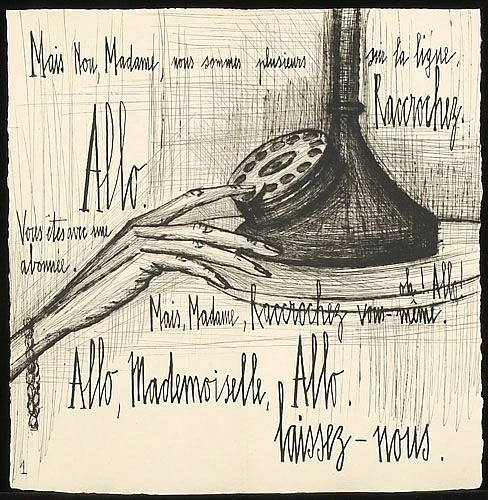 Mais Non, Madame, nous sommes plusieurs sur la ligne,
Raccrochez.
Allo.
Vous êtes avec une
abonnée.
oh! Allo!
Mais, Madame, Raccrochez vous-même.
Allo, Mademoiselle, Allo.
laissez-nous.
1